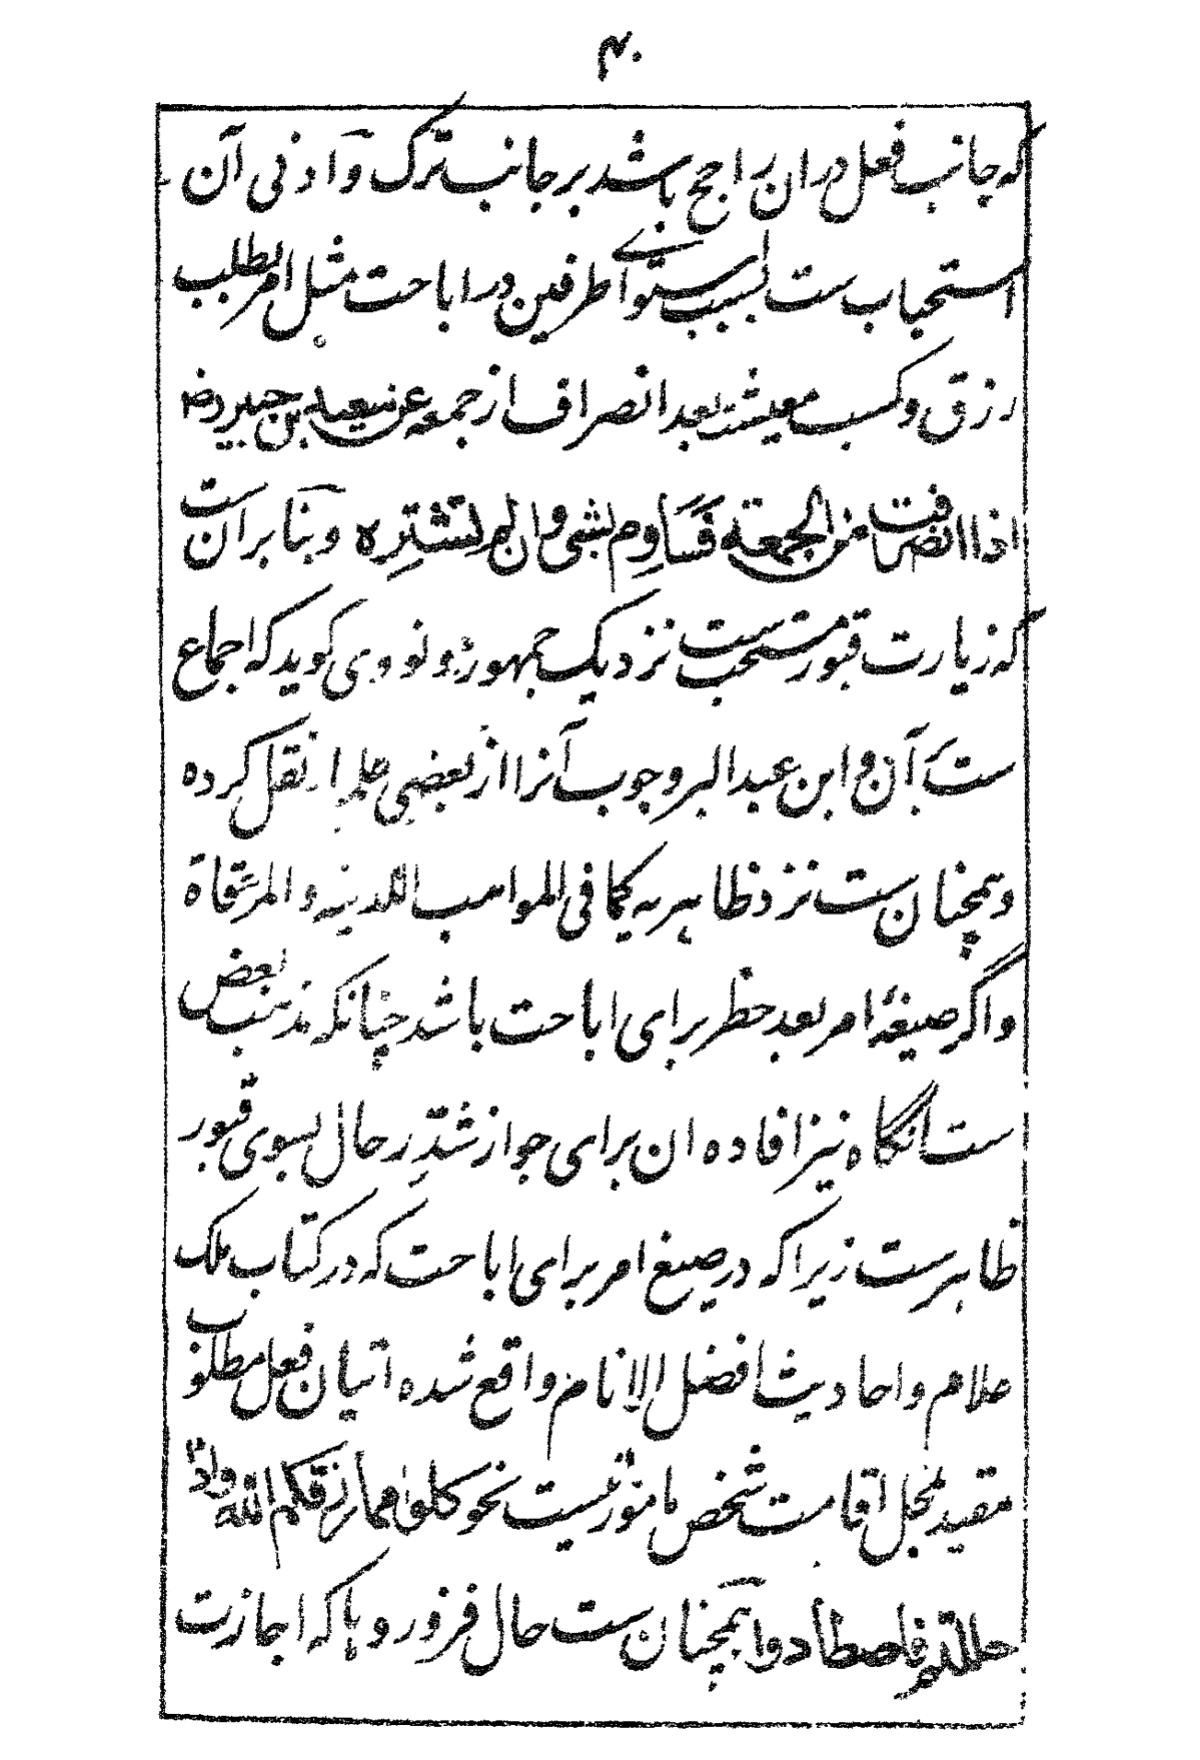 ۴۰
که جانب فعل دران راجح باشد بر جانب ترک و ادنی آن
استحباب ست بسبب استوای طرفین در اباحت مثل امر بطلب
رزق و کسب معیشت بعد انصراف از جمعه عن سعید بن جبیر رض
اذا انصرفت من الجمعة فساوم بشی وان لم تشتره و بنابران ست
که زیارت قبور مستحب ست نزدیک جمهور و نووی کوید که اجماع
ست بر آن و ابن عبد البر وجوب آنرا از بعضی علما نقل کرده
و همچنان ست نزد ظاهریه کما فی المواهب اللدنیه والمرقاة
و اگر صیغهٔ امر بعد حظر برای اباحت باشد چنانکه مذهب بعض
ست آنگاه نیز افاده ان برای جواز شد رحال بسوی قبور
ظاهر ست زیرا که در صیغ امر برای اباحت که در کتاب ملک
علام و احادیث افضل الانام واقع شده اتیان فعل مطلوب
مقید بمحل اقامت شخص مامور نیست نحو کلوا مما رزقکم الله واذا
حللتم فاصطادوا همچنان ست حال فزوروها که اجازت